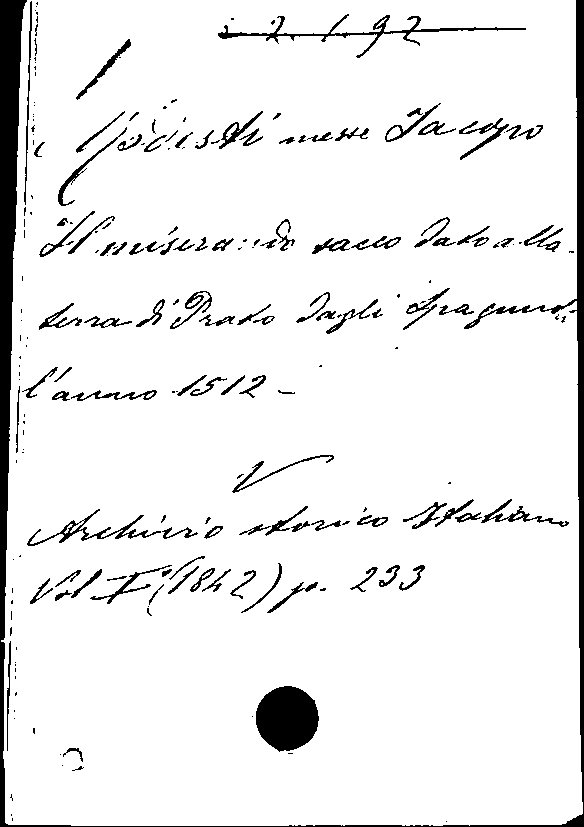 2. 1. 92
Modesti messe Jacopo
Il miserando sacco dato alla
terra di Prato dagli Spagnuoli
l'anno 1512 -
V
Archivio storico Italiano
Vol I° (1842) p. 233